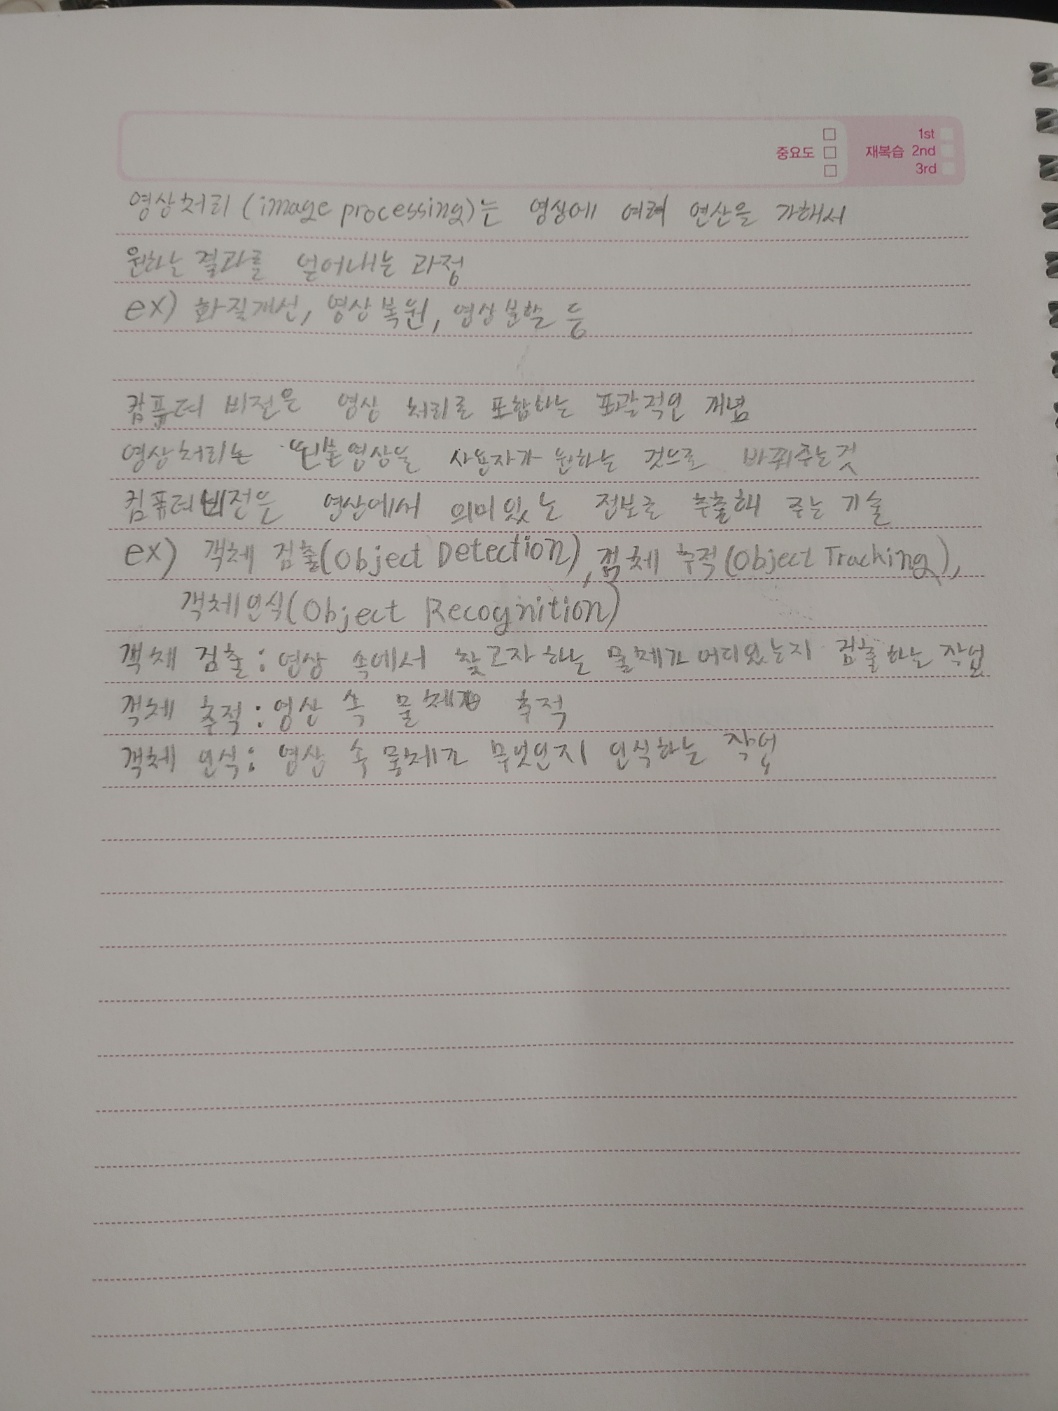 중요도
재복습
1st
2nd
3rd
영상처리 (image processing)는 영상에 여러 연산을 가해서
원하는 결과를 얻어내는 과정
ex) 화질개선, 영상복원, 영상분할 등
컴퓨터 비전은 영상 처리를 포함하는 포괄적인 개념
영상처리는 영상을 사용자가 원하는 것으로 바꿔주는것
컴퓨터비전은 영상에서 의미있는 정보를 추출해 주는 기술
ex) 객체 검출(Object Detection), 객체 추적(Object Tracking),
객체인식(Object Recognition)
객체 검출: 영상 속에서 찾고자하는 물체가 어디있는지 검출하는 작업
객체 추적: 영상 속 물체 추적
객체 인식: 영상 속 물체가 무엇인지 인식하는 작업